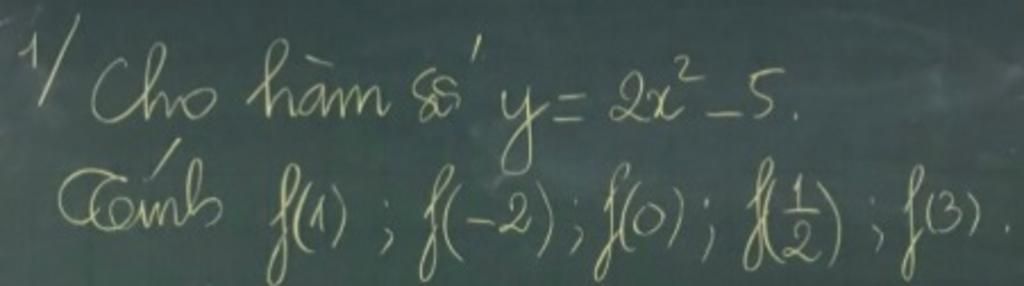 1/ Cho hàm số y = 2x² - 5.
Tính f(1) ; f(-2) ; f(0) ; f(1/2) ; f(3).